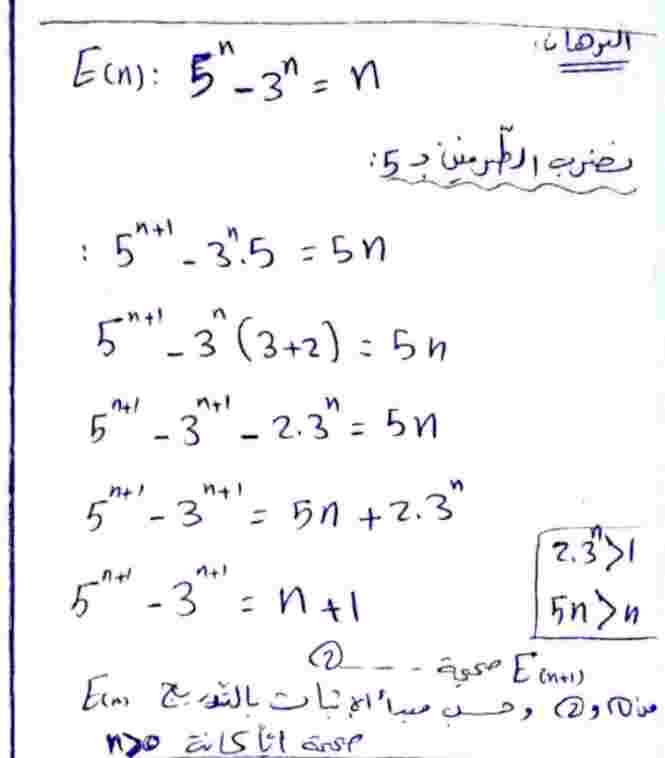 البرهان:
E(n): 5^n - 3^n = n
نضرب الطرفين بـ 5:
: 5^{n+1} - 3^n . 5 = 5n
5^{n+1} - 3^n (3+2) = 5n
5^{n+1} - 3^{n+1} - 2.3^n = 5n
5^{n+1} - 3^{n+1} = 5n + 2.3^n
2.3^n > 1
5^{n+1} - 3^{n+1} = n + 1
5n > n
E(n+1) صحيحة - - - - ②
من ① و ② وحسب مبدأ الإثبات بالتدريج E(n)
صحيحة أياً كانت n>0